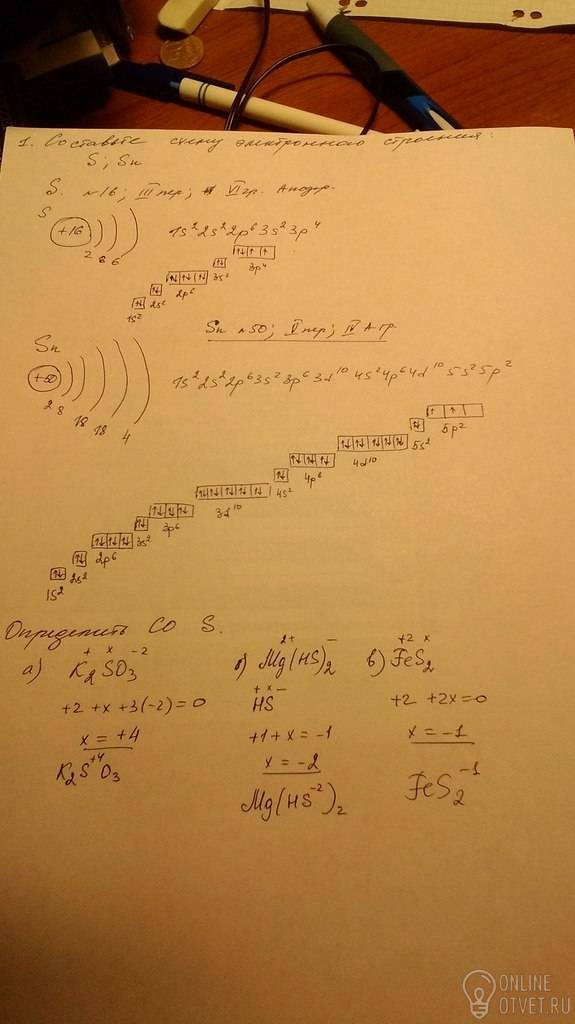 1. Составьте схему электронного строения:
S; Sn
S. №16; III пер; VI гр. А подгр.
S
+16
2 8 6
1s² 2s² 2p⁶ 3s² 3p⁴
3p⁴
3s²
2p⁶
2s²
1s²
Sn №50; V пер; IV А гр
Sn
+50
2 8 18 18 4
1s² 2s² 2p⁶ 3s² 3p⁶ 3d¹⁰ 4s² 4p⁶ 4d¹⁰ 5s² 5p²
5p²
5s²
4d¹⁰
4p⁶
4s²
3d¹⁰
3p⁶
3s²
2p⁶
2s²
1s²
Определить СО S.
+ x -2
а) K₂SO₃
+2 +x +3(-2) = 0
x = +4
K₂S⁺⁴O₃
2+ –
б) Mg(HS)₂
+ x –
HS
+1 + x = -1
x = -2
Mg(HS⁻²)₂
+2 x
в) FeS₂
+2 +2x = 0
x = -1
FeS₂⁻¹
ONLINE
OTVET.RU